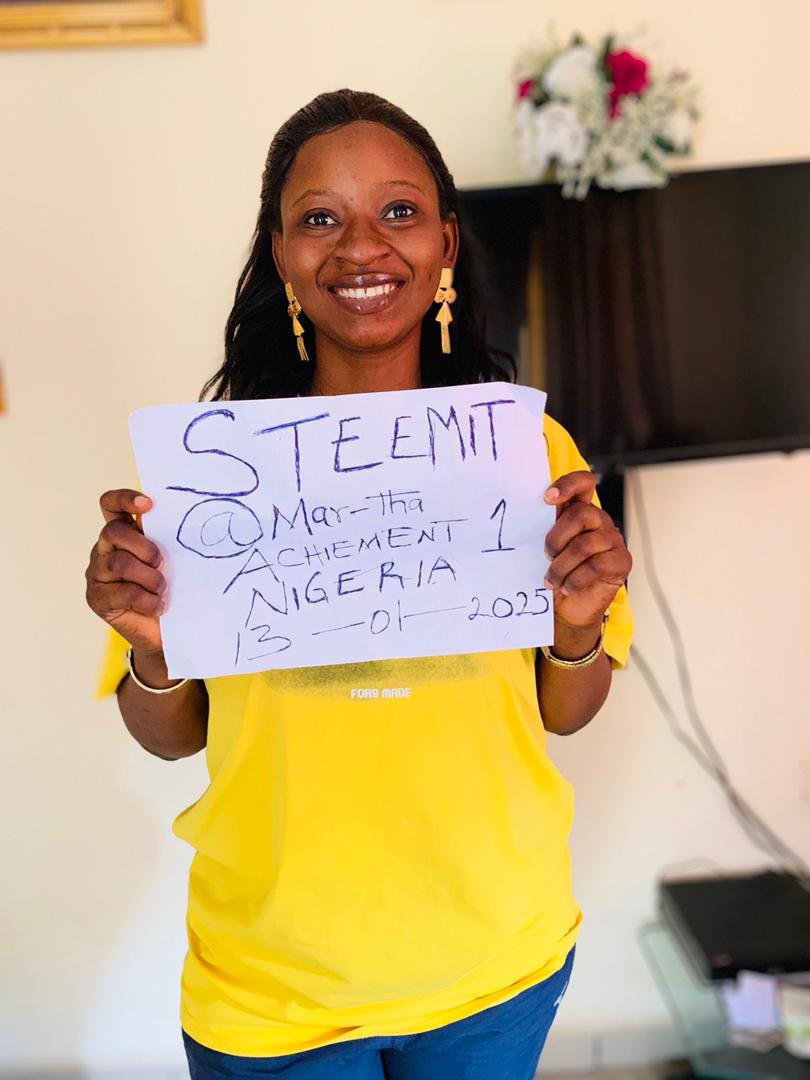 STEEMIT
@Mar-Tha
ACHIEMENT 1
NIGERIA
13-01-2025
FOR9 MADE